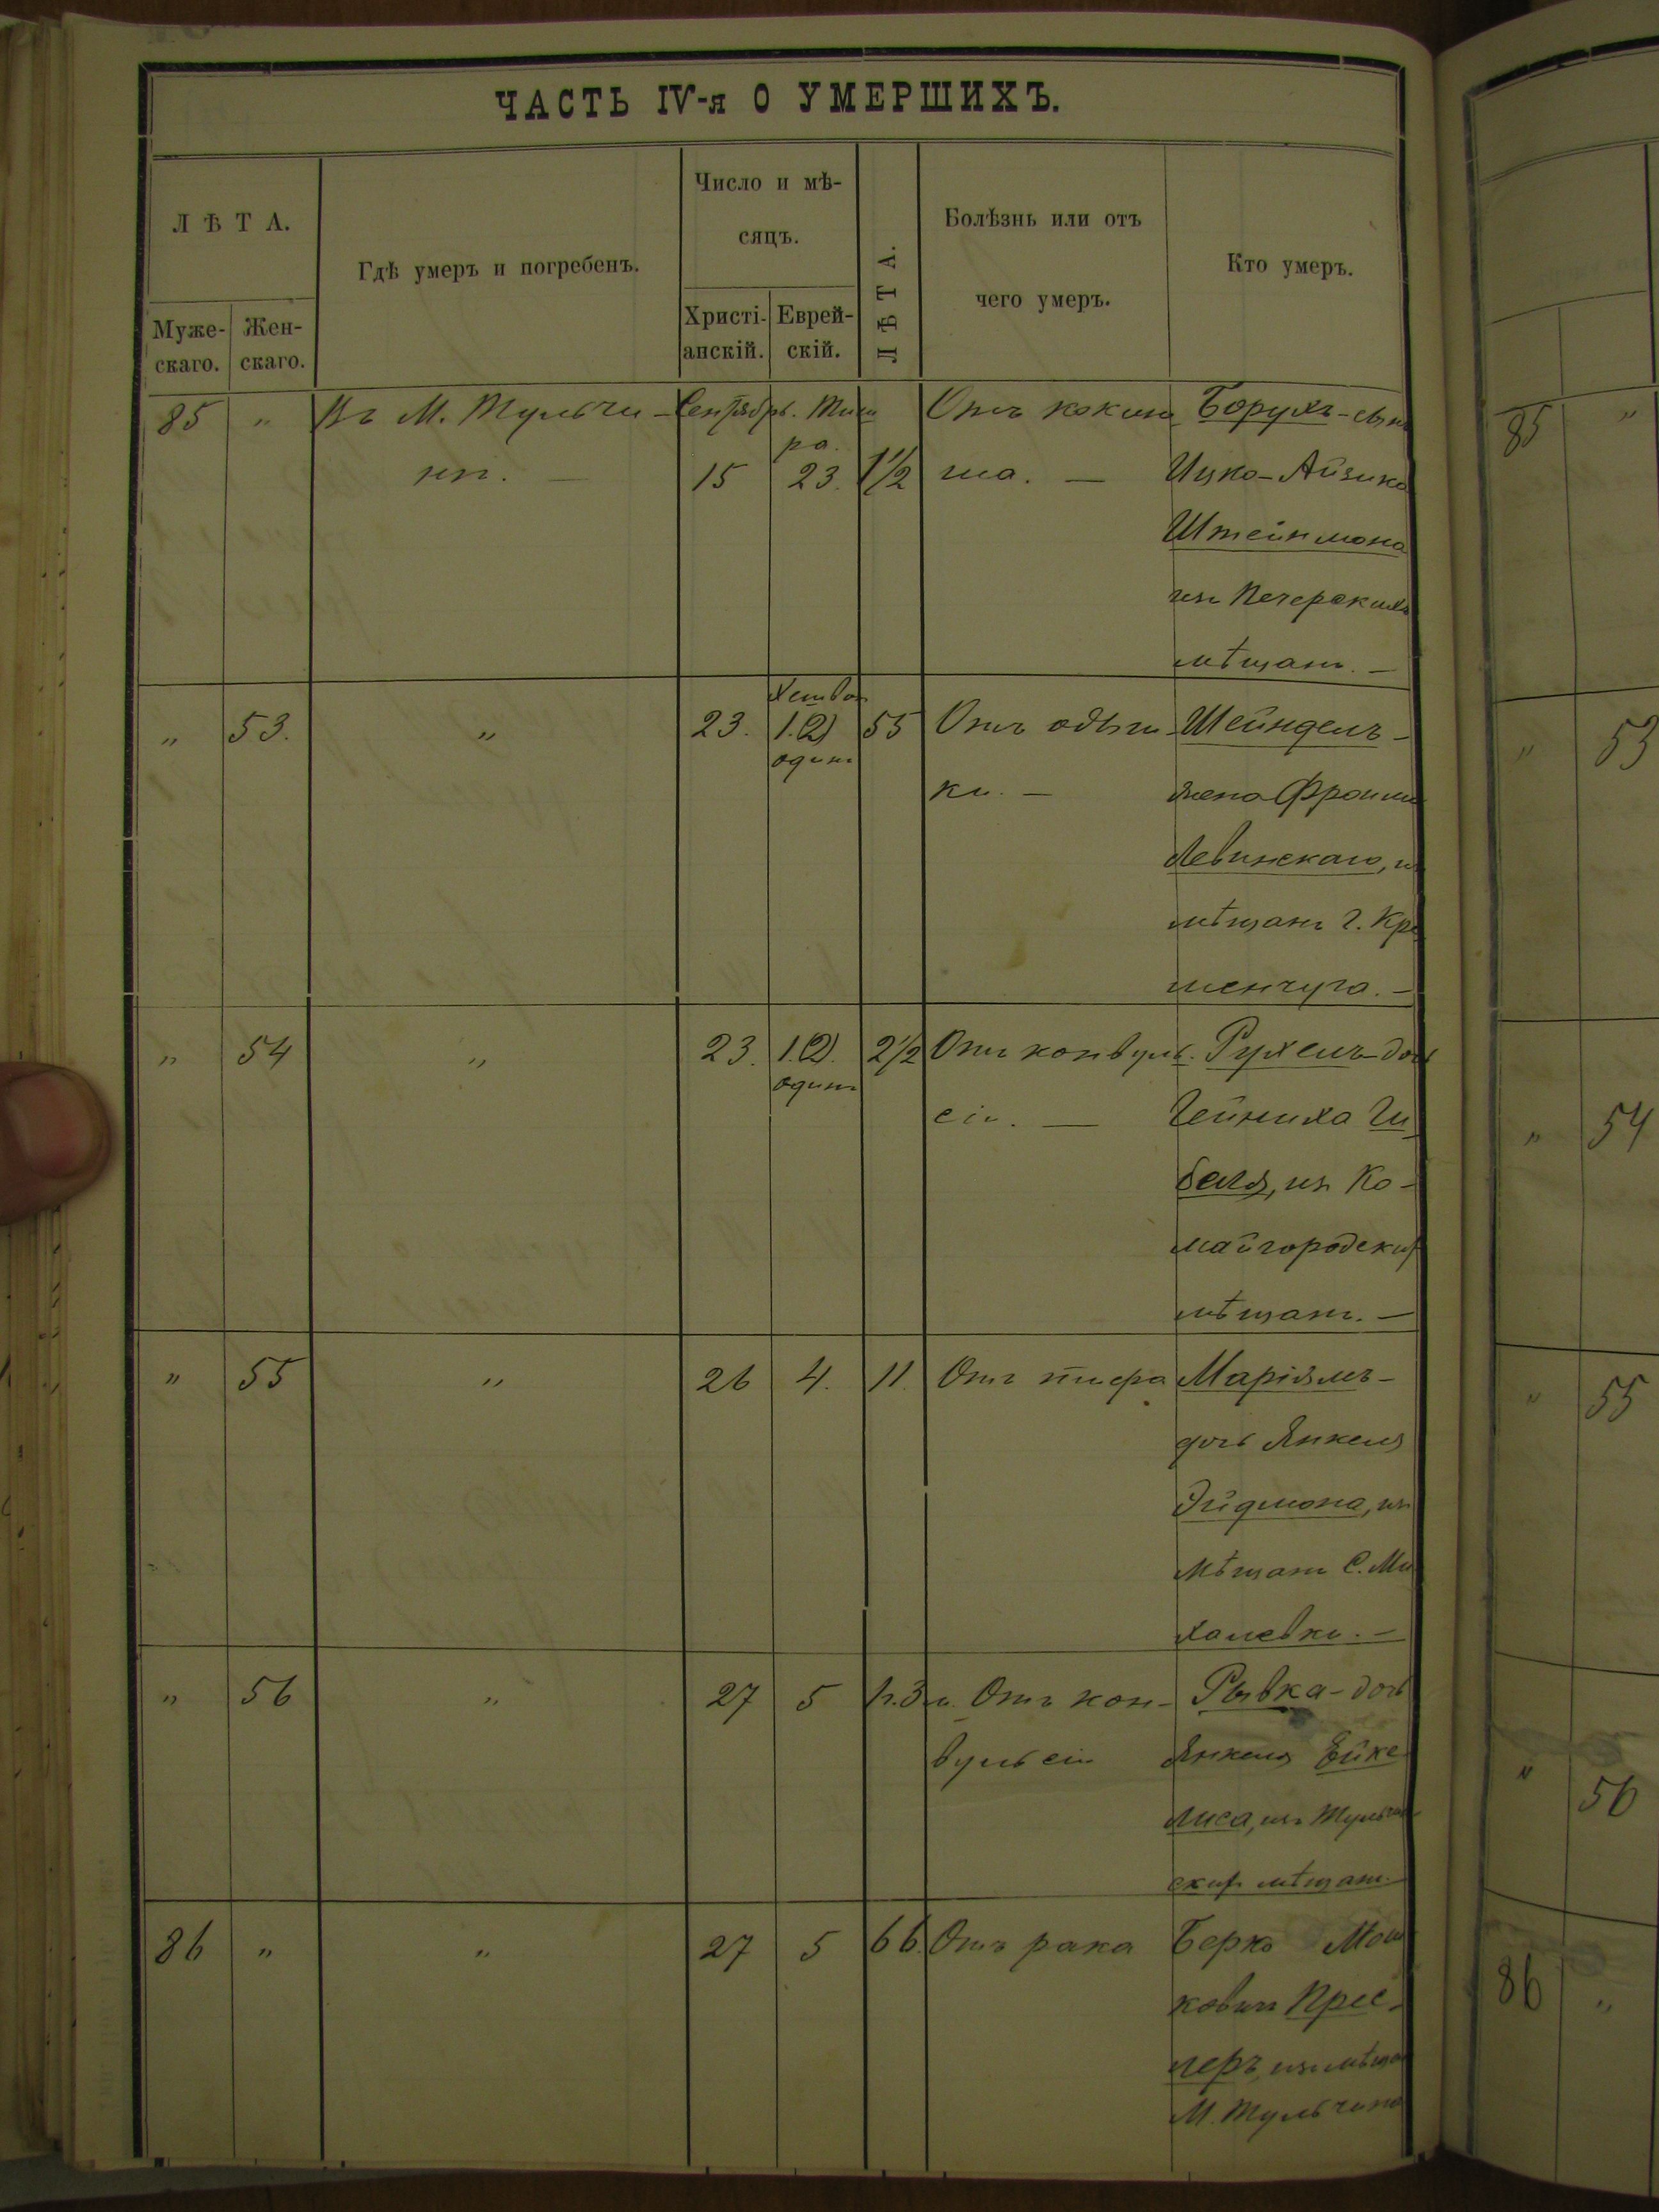 ЧАСТЬ IV-я О УМЕРШИХЪ.
ЛѢТА.
Муже-
скаго.
Жен-
скаго.
Гдѣ умеръ и погребенъ.
Число и мѣ-
сяцъ.
Христі-
анскій.
Еврей-
скій.
ЛѢТА.
Болѣзнь или отъ
чего умеръ.
Кто умеръ.
85 " Въ М. Тульчи- Сентябрь. Тиш Отъ коклю Борухъ-сынъ
ра.
нѣ. — 15 23. 1 1/2 ша. — Ицко-Айзика
Штейнмана
изъ Печерскихъ
мѣщанъ. —
Хешван
" 53. " 23. 1.(2) 55 Отъ одыш- Шейндель-
одинъ
ки. — жена Фроима
Левинскаго, из
мѣщанъ г. Кре
менчуга. —
" 54 " 23. 1.(2). 2 1/2 Отъ конвуль- Рухель-дочь
одинъ
сіи. — Гейниха Ги-
беля, изъ Ко-
майгородских
мѣщанъ. —
" 55 " 26 4. 11. Отъ тифа Маріямъ-
дочь Янкеля
Эйдмана, изъ
мѣщанъ С. Ми
халевки. —
" 56 " 27 5 1г.3м. Отъ кон- Рывка-дочь
вульсіи Янкеля Ейке
лиса, изъ Тульчин-
ских мѣщанъ.
86 " " 27 5 66. Отъ рака Берко Мош
ковичъ Прес-
леръ, изъ мѣщан
М. Тульчина
85 "
" 53
" 54
" 55
" 56
86 "